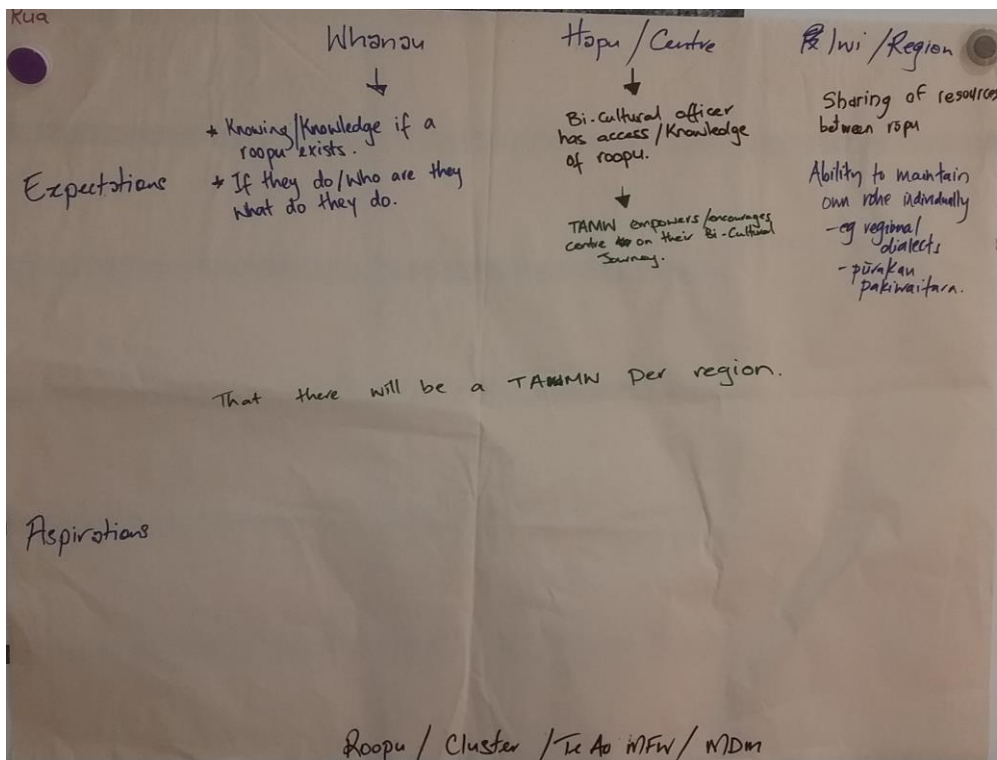 Rua
Whanau
Hapu / Centre
Iwi / Region
Expectations
* Knowing/Knowledge if a
roopu exists.
* If they do/Who are they
what do they do.
Bi-Cultural officer
has access/Knowledge
of roopu.
TAMW empowers/encourages
centre on their Bi-Cultural
Journey.
Sharing of resources
between ropu
Ability to maintain
own rohe individually
-eg regional
dialects
-pūrakau
pakiwaitara.
That there will be a TAMW per region.
Aspirations
Roopu / Cluster / Te Ao MFW / MDM